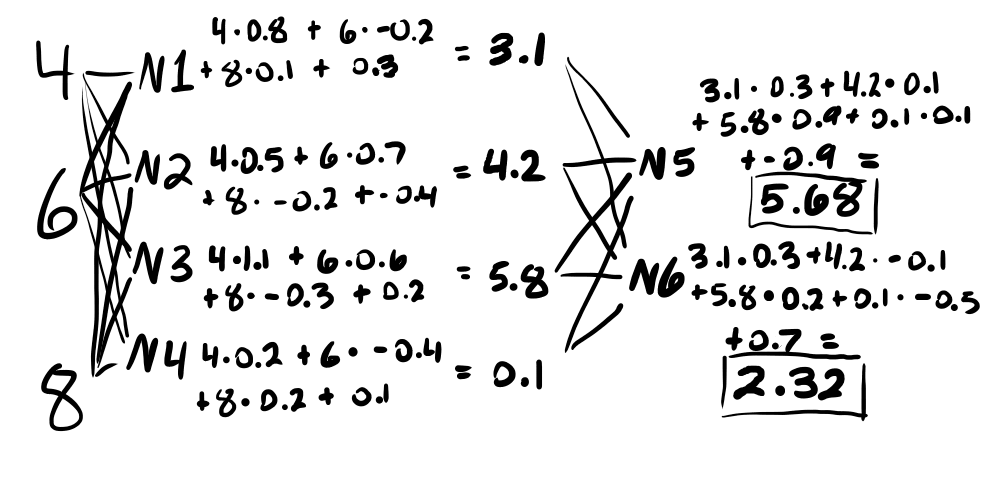 4
6
8
N1
4·0.8 + 6·-0.2
+ 8·0.1 + 0.3
= 3.1
N2
4·0.5 + 6·0.7
+ 8·-0.2 + -0.4
= 4.2
N3
4·1.1 + 6·0.6
+ 8·-0.3 + 0.2
= 5.8
N4
4·0.2 + 6·-0.4
+ 8·0.2 + 0.1
= 0.1
N5
3.1·0.3 + 4.2·0.1
+ 5.8·0.9 + 0.1·0.1
+ -0.9 =
5.68
N6
3.1·0.3 + 4.2·-0.1
+ 5.8·0.2 + 0.1·-0.5
+ 0.7 =
2.32